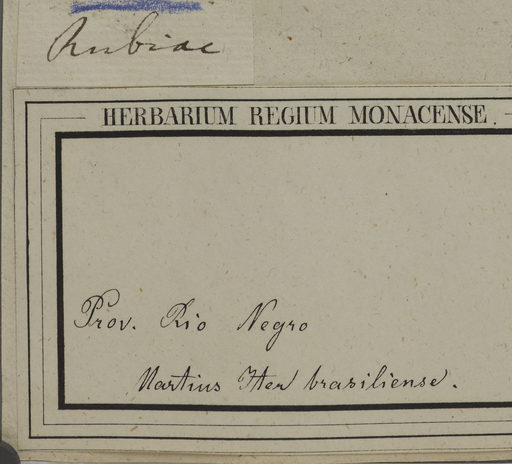 Rubiac
HERBARIUM REGIUM MONACENSE.
Prov. Rio Negro
Martius Iter brasiliense.